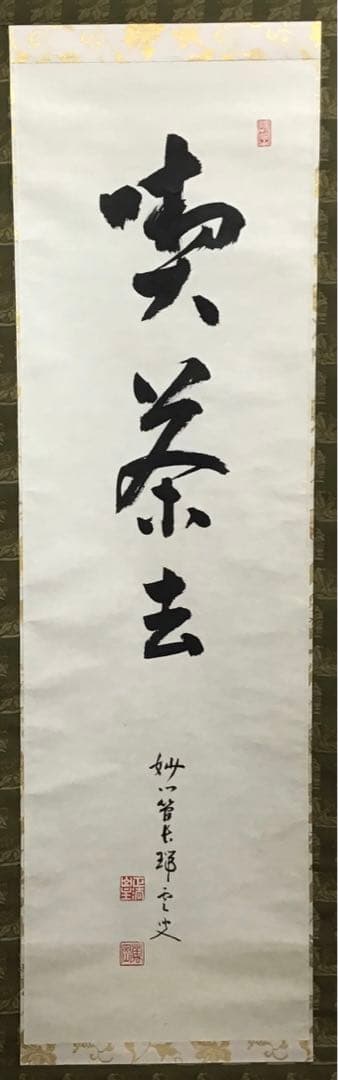 喫茶去
妙心管長瑞雲叟